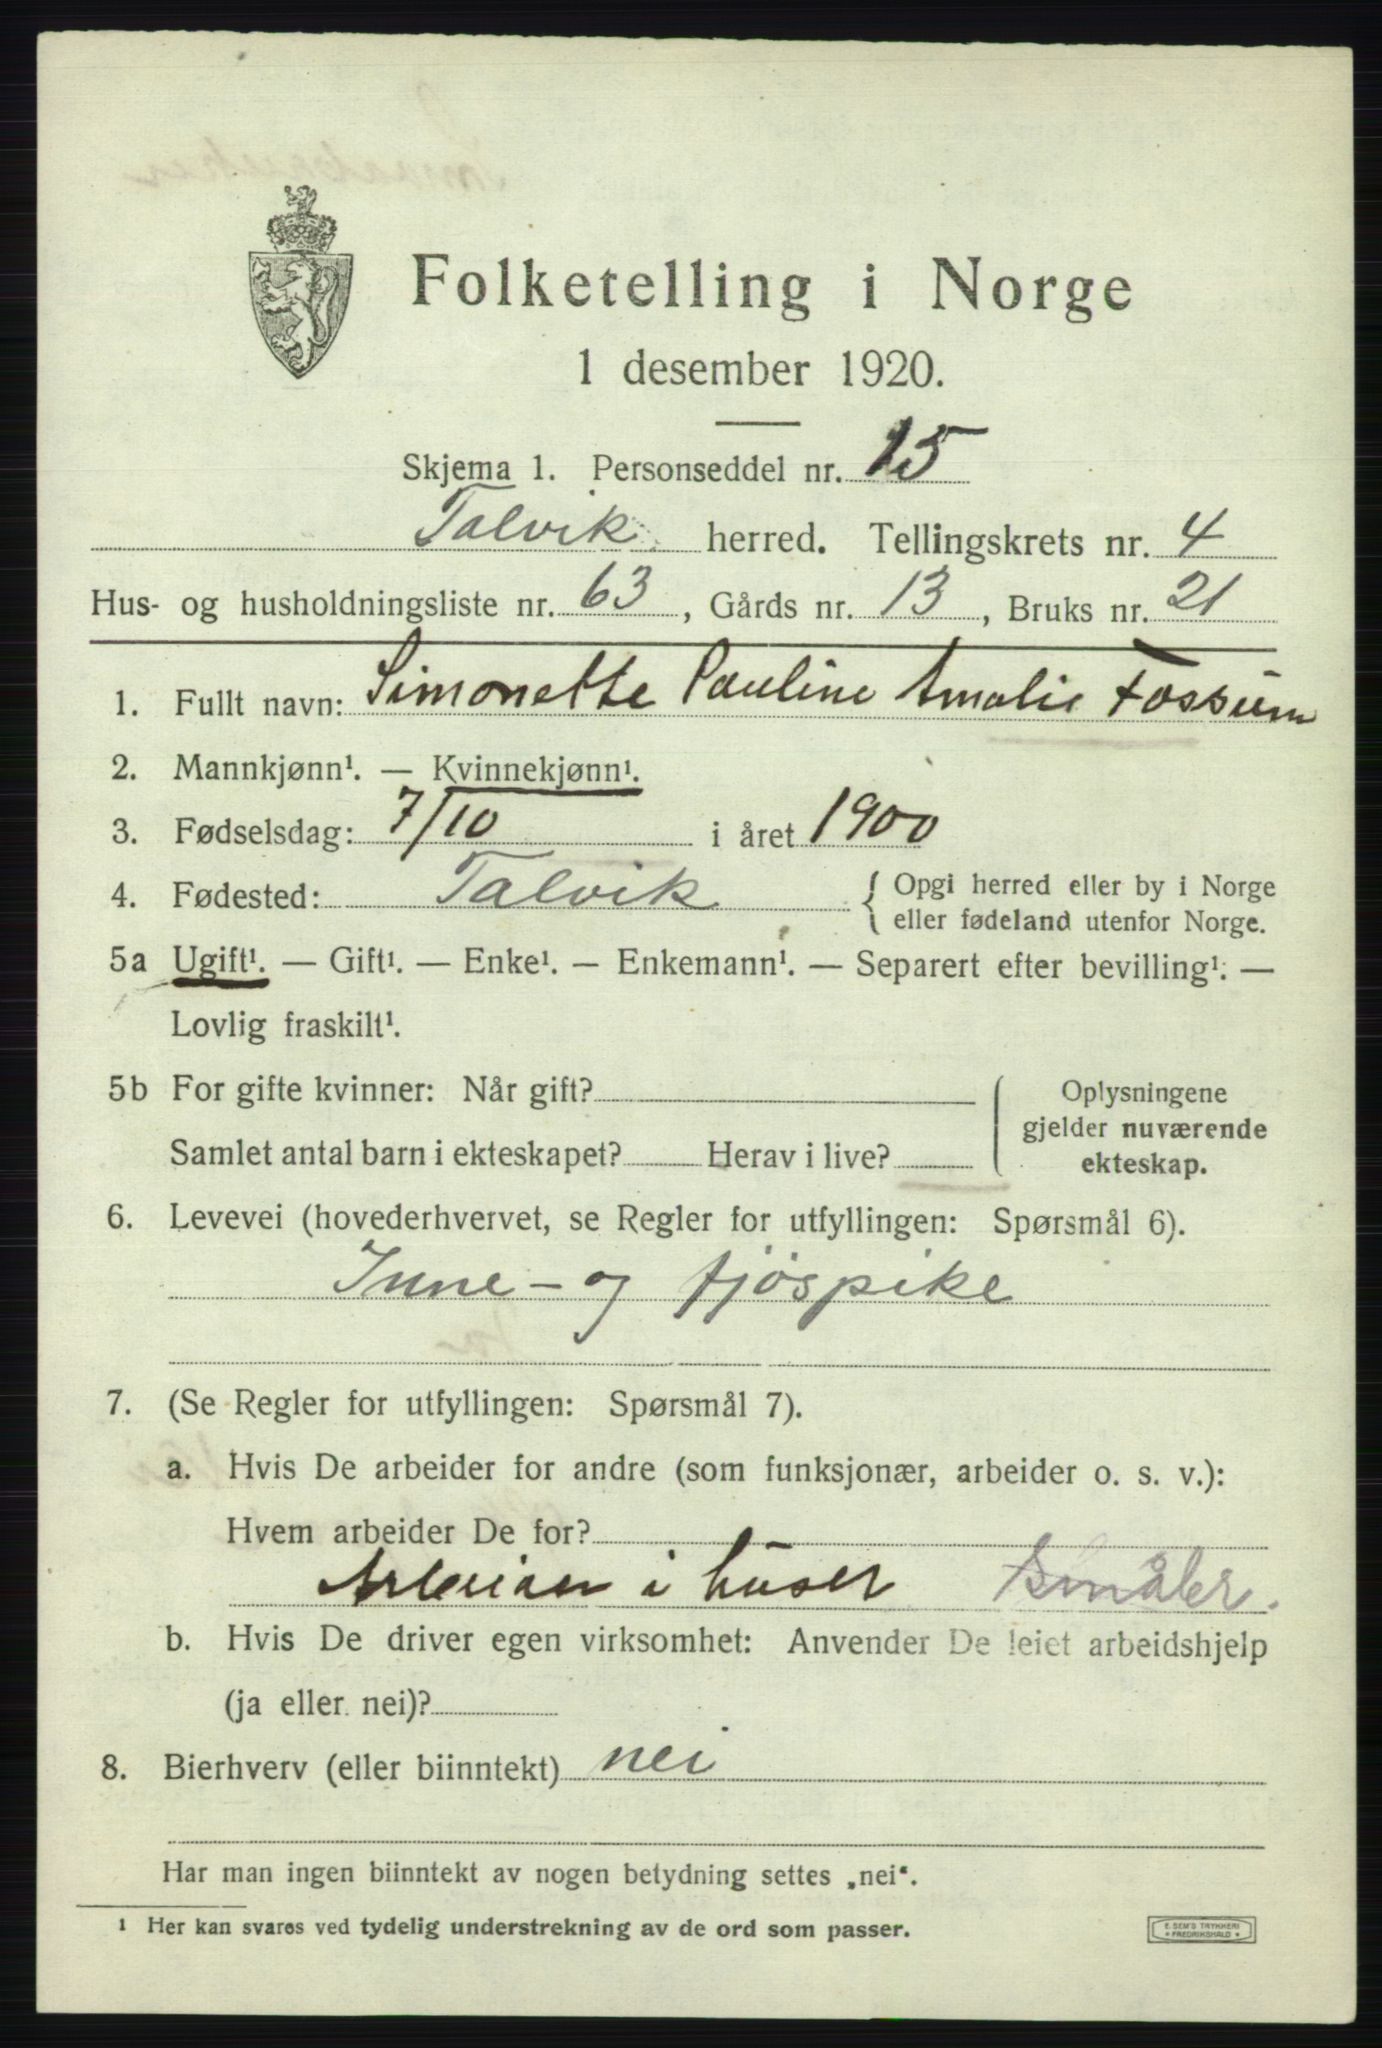 Folketelling i Norge
1 desember 1920.
Skjema 1. Personseddel nr. 15
Talvik herred. Tellingskrets nr. 4
Hus- og husholdningsliste nr. 63, Gårds nr. 13, Bruks nr. 21
1. Fullt navn: Simonette Pauline Amalie Fossum
2. Mannkjønn¹. — Kvinnekjønn¹.
3. Fødselsdag: 7/10 i året 1900
4. Fødested: Talvik { Opgi herred eller by i Norge
eller fødeland utenfor Norge.
5a Ugift¹. — Gift¹. — Enke¹. — Enkemann¹. — Separert efter bevilling¹. —
Lovlig fraskilt¹.
5b For gifte kvinner: Når gift?
Samlet antal barn i ekteskapet? Herav i live?
Oplysningene
gjelder nuværende
ekteskap.
6. Levevei (hovederhvervet, se Regler for utfyllingen: Spørsmål 6).
Inne- og fjøspike
7. (Se Regler for utfyllingen: Spørsmål 7).
a. Hvis De arbeider for andre (som funksjonær, arbeider o. s. v.):
Hvem arbeider De for?
i huset
b. Hvis De driver egen virksomhet: Anvender De leiet arbeidshjelp
(ja eller nei)?
8. Bierhverv (eller biinntekt) nei
Har man ingen biinntekt av nogen betydning settes „nei“.
1 Her kan svares ved tydelig understrekning av de ord som passer.
E. SEM'S TRYKKERI
* FREDRIKSHALD *